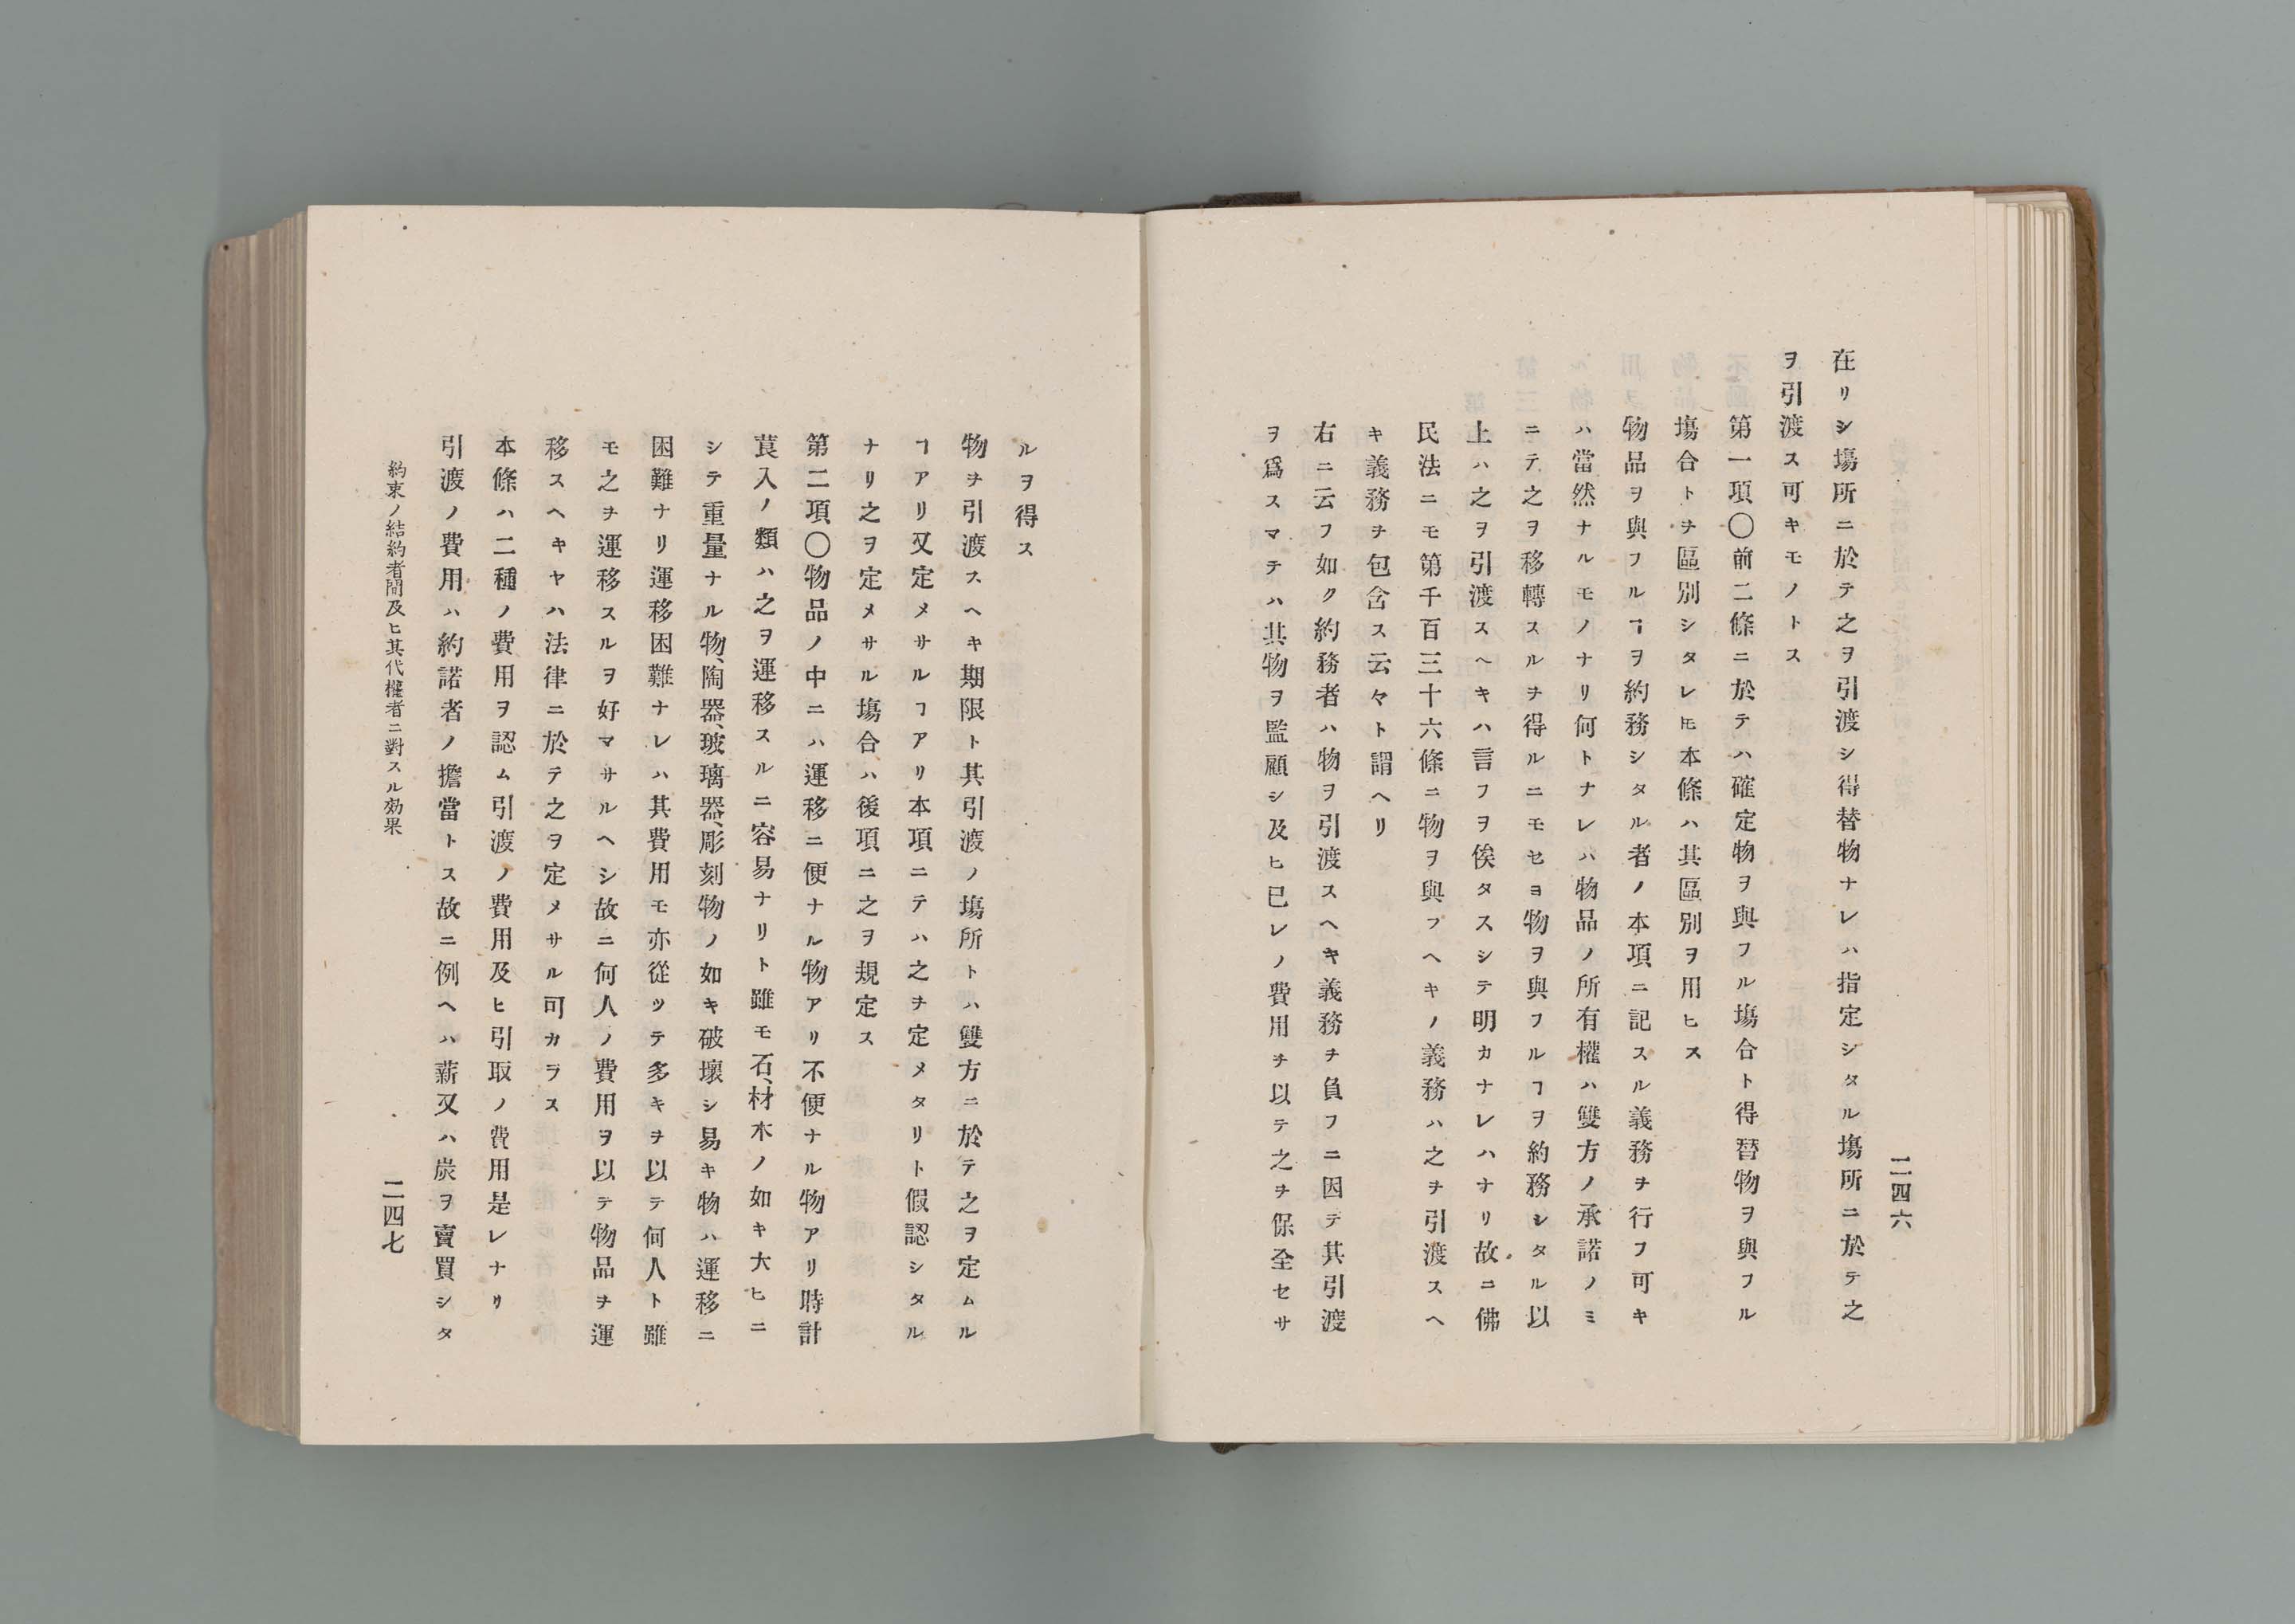 二四六
在リシ塲所ニ於テ之ヲ引渡シ得替物ナレハ指定シタル塲所ニ於テ之
ヲ引渡ス可キモノトス
第一項〇前二條ニ於テハ確定物ヲ與フル塲合ト得替物ヲ與フル
塲合トヲ區別シタレ𪜈本條ハ其區別ヲ用ヒス
物品ヲ與フルヿヲ約務シタル者ノ本項ニ記スル義務ヲ行フ可キ
ハ當然ナルモノナリ何トナレハ物品ノ所有權ハ雙方ノ承諾ノミ
ニテ之ヲ移轉スルヲ得ルニモセヨ物ヲ與フルヿヲ約務シタル以
上ハ之ヲ引渡スヘキハ言フヲ俟タスシテ明カナレハナリ故ニ佛
民法ニモ第千百三十六條ニ物ヲ與フヘキノ義務ハ之ヲ引渡スヘ
キ義務ヲ包含ス云々ト謂ヘリ
右ニ云フ如ク約務者ハ物ヲ引渡スヘキ義務ヲ負フニ因テ其引渡
ヲ爲スマテハ其物ヲ監顧シ及ヒ已レノ費用ヲ以テ之ヲ保全セサ
ルヲ得ス
物ヲ引渡スヘキ期限ト其引渡ノ塲所トハ雙方ニ於テ之ヲ定ムル
ヿアリ又定メサルヿアリ本項ニテハ之ヲ定メタリト假認シタル
ナリ之ヲ定メサル塲合ハ後項ニ之ヲ規定ス
第二項〇物品ノ中ニハ運移ニ便ナル物アリ不便ナル物アリ時計
莨入ノ類ハ之ヲ運移スルニ容易ナリト雖モ石、材木ノ如キ大ヒニ
シテ重量ナル物、陶器、玻璃器、彫刻物ノ如キ破壞シ易キ物ハ運移ニ
困難ナリ運移困難ナレハ其費用モ亦從ツテ多キヲ以テ何人ト雖
モ之ヲ運移スルヲ好マサルヘシ故ニ何人ノ費用ヲ以テ物品ヲ運
移スヘキヤハ法律ニ於テ之ヲ定メサル可カラス
本條ハ二種ノ費用ヲ認ム引渡ノ費用及ヒ引取ノ費用是レナリ
引渡ノ費用ハ約諾者ノ擔當トス故ニ例ヘハ薪又ハ炭ヲ賣買シタ
約束ノ結約者間及ヒ其代權者ニ對スル効果
二四七